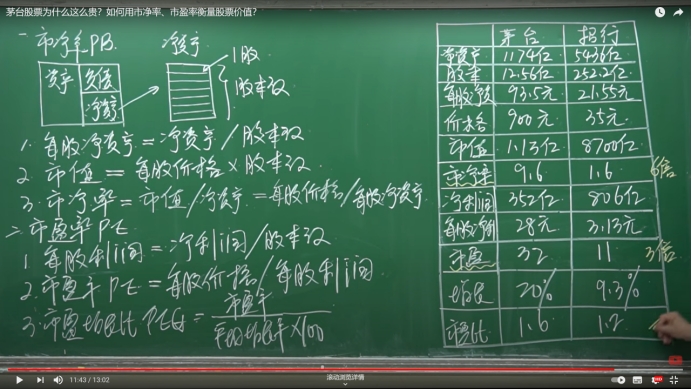 茅台股票为什么这么贵?如何用市净率、市盈率衡量股票价值?
一市净率PB.
净资产
资产 负债
净资产
1股
股本数
1. 每股净资产=净资产/股本数
2. 市值=每股价格×股本数
3. 市净率=市值/净资产=每股价格/每股净资产
二.市盈率PE
1. 每股利润=净利润/股本数
2. 市盈率PE=每股价格/每股利润
3. 市盈增长比PEG=市盈率/平均增长率×100
茅台 招行
净资产 1174亿 5436亿
股本 12.56亿 252.2亿
每股净资 93.5元 21.55元
价格 900元 35元
市值 1.13亿 8700亿
市净率 9.6 1.6 6倍
净利润 352亿 806亿
每股净利 28元 3.13元
市盈 32 11 3倍
增长 20% 9.3%
市盈比 1.6 1.2
11:43 / 13:02
滚动浏览详情